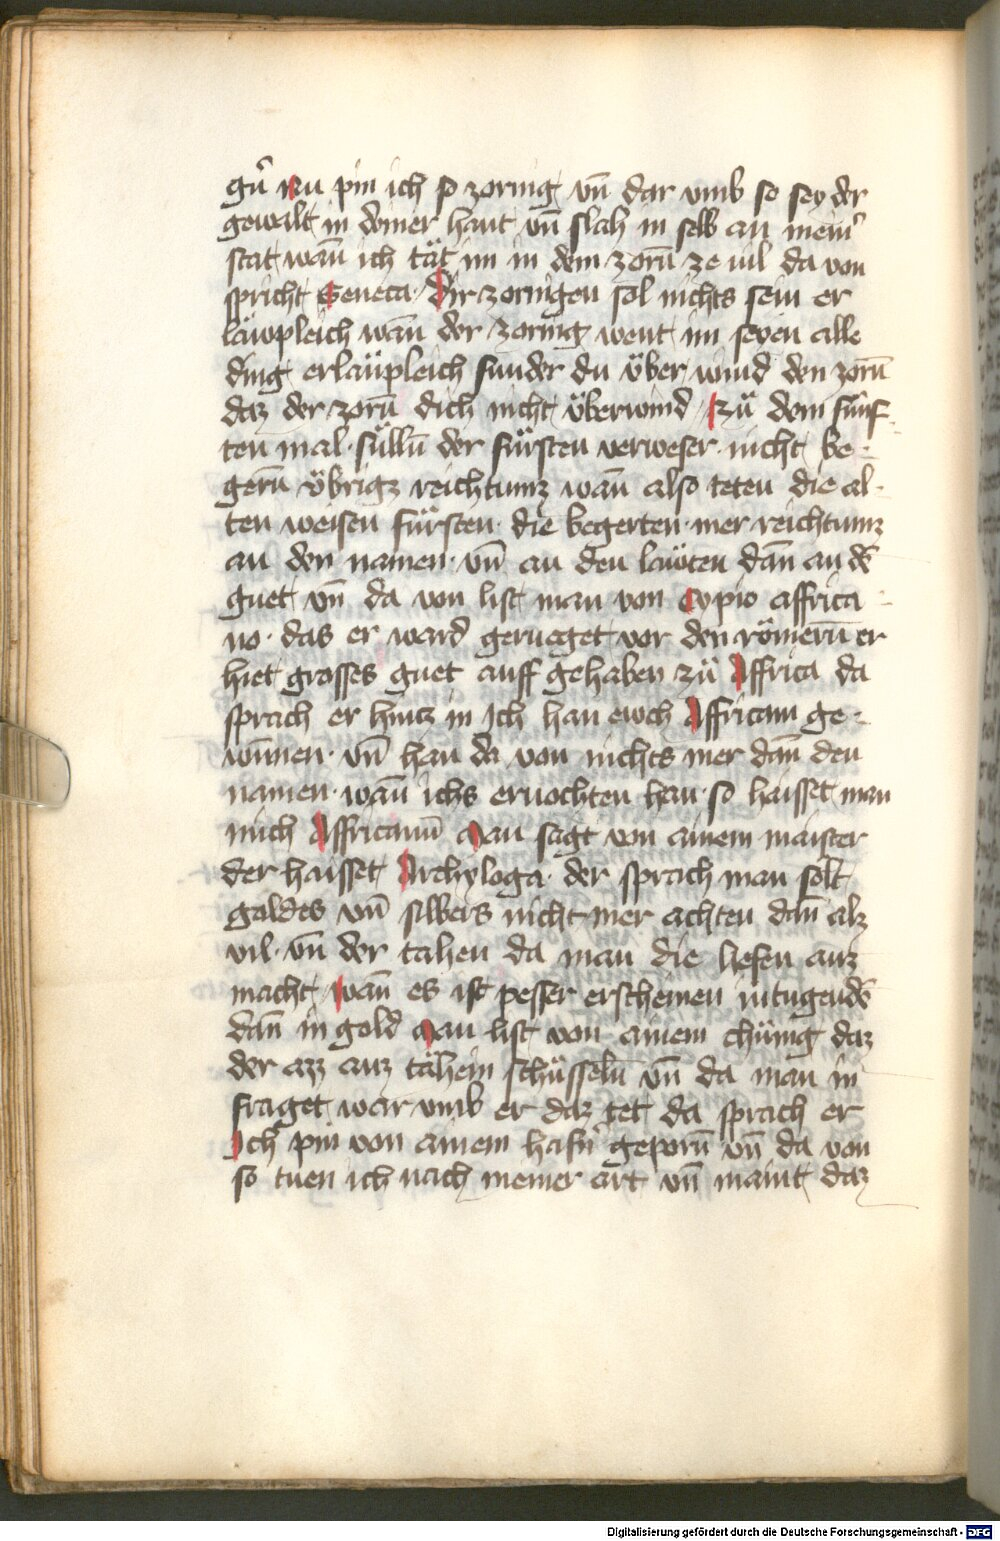 gu̇ Nu pin ich so zornig vn̄ dar vmb so sey der
gewalt in deiner hant vn̄ slah in selb an mein̄
stat wan̄ ich tät im in dem zorn̄ ze uil da von
spricht Seneca Dir zornigen sol nichts sein er
läwpleich wan̄ der zornig went im seyen alle
ding erläupleich sunder du über wind den zorn̄
daz der zorn̄ dich nicht überwind zu̇ dem fünf
ten mal sülln̄ der fürsten verweser nicht be
gern̄ übrigz reichtumz wan̄ also teten die al
ten weisen fürsten die begerten mer reichtumz
an den namen vn̄ an den läwten dan̄ an dē
guet vn̄ da von list man von Cypio affrica
no das er ward gerueget vor den römern̄ er
hiet grosses guet auff gehaben zu̇ Affrica da
sprach er hincz in Ich han ewch Affricam ge
wunnen vn̄ han da von nichts mer dan̄ den
namen wan̄ ichs eruochten han so haisset man
mich Affricanū Man sagt von ainem maister
der haisset Archyloga der sprach man solt
goldes vn̄ silbers nicht mer achten dan̄ alz
vil vn̄ der tahen da man die hefen auz
macht wan̄ es ist pesser erscheinen in tugendē
dan̄ in gold Man list von ainem chünig daz
der azz auz tähein schüsseln̄ vn̄ da man in
fraget war vmb er daz tet da sprach er
Ich pin von ainem hafn̄ geporn̄ vn̄ da von
so tuen ich nach meiner art vn̄ maint daz
Digitalisierung gefördert durch die Deutsche Forschungsgemeinschaft - DFG